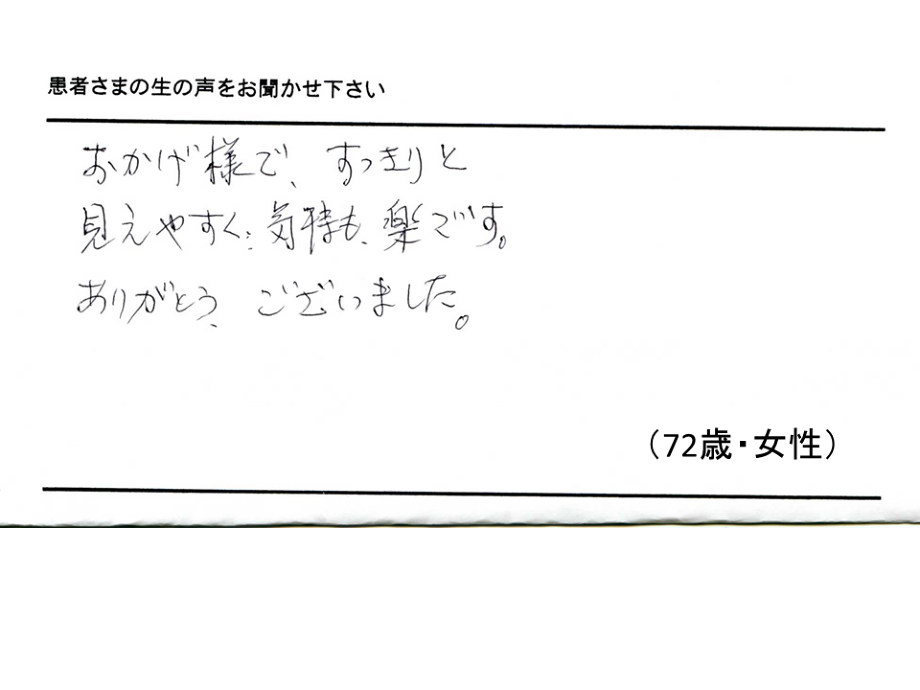 患者さまの生の声をお聞かせ下さい
おかげ様で、すっきりと
見えやすく、気持も、楽です。
ありがとう、ございました。
（72歳・女性）